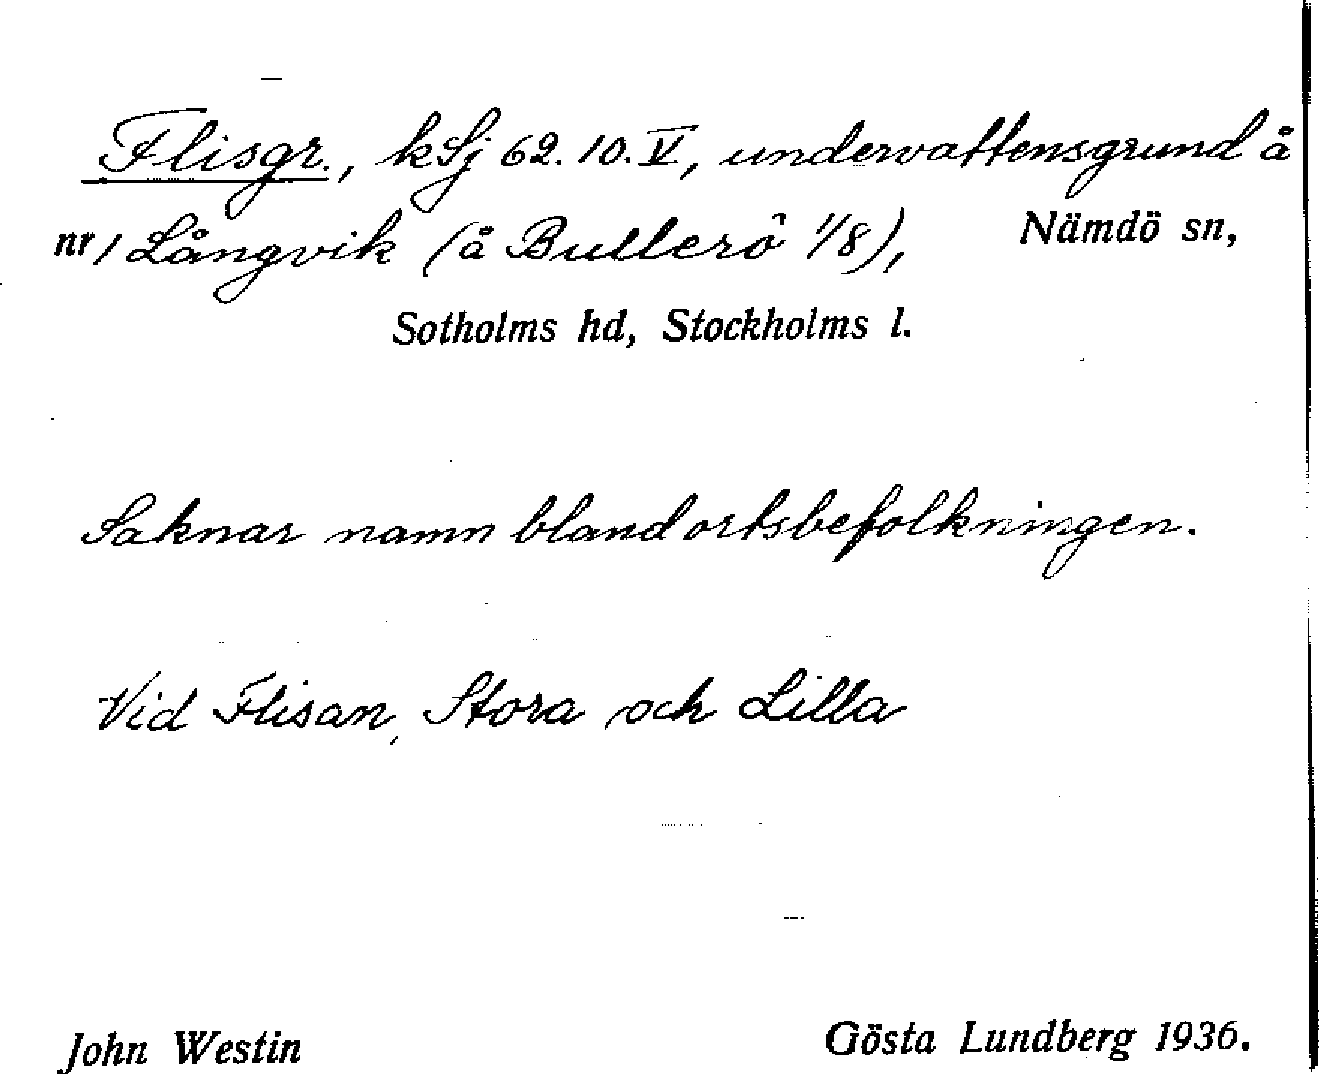 Flisgr., kSj 62.10.V, undervattensgrund å
nr 1 Långvik (å Bullerö 1/8), Nämdö sn,
Sotholms hd, Stockholms l.
Saknar namn bland ortsbefolkningen.
Vid Flisan, Stora och Lilla
John Westin Gösta Lundberg 1936.